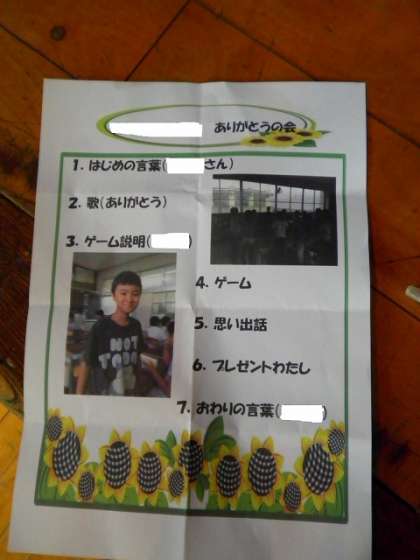 ありがとうの会
1. はじめの言葉(さん)
2. 歌(ありがとう)
3. ゲーム説明()
4. ゲーム
5. 思い出話
6. プレゼントわたし
7. おわりの言葉()
NOT
TODAY